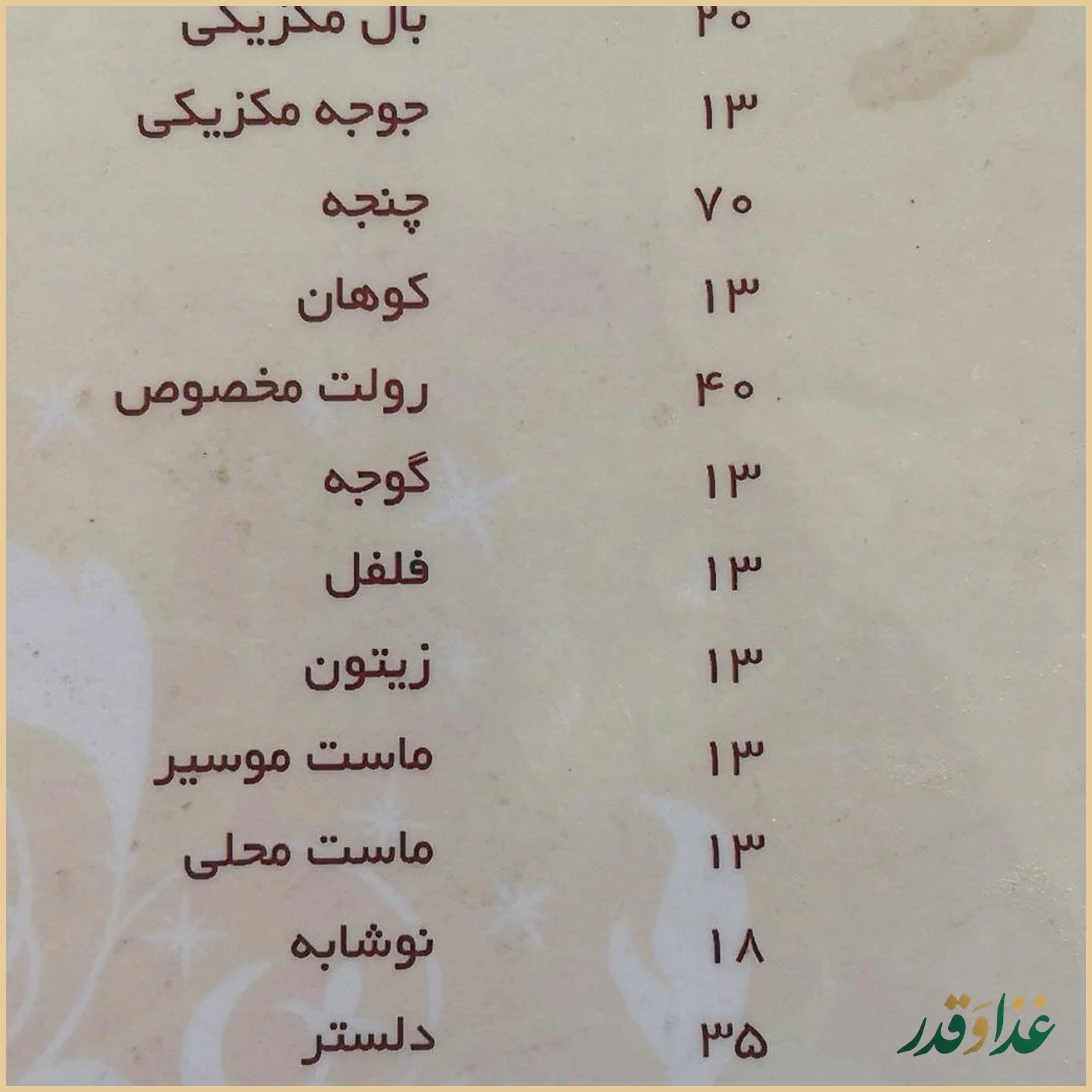 بال مکزیکی ۲۰
جوجه مکزیکی ۱۳
چنجه ۷۰
کوهان ۱۳
رولت مخصوص ۴۰
گوجه ۱۳
فلفل ۱۳
زیتون ۱۳
ماست موسیر ۱۳
ماست محلی ۱۳
نوشابه ۱۸
دلستر ۳۵
غذا و قدر